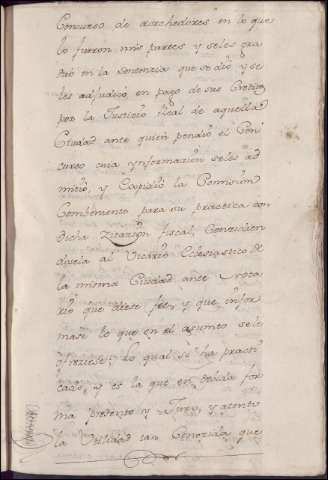 Concurso de acrehedores en lo que
lo fueron mis partes y seles gra
duó en la Sentencia que se dió y se
les adjudicó en pago de sus Creditos
por la Justicia Real de aquella
Ciudad ante quien pendió el Con
curso cuia ynformacion seles ad
mitió, y Expidió la Comision
Combeniente para su practica con
dicha Zitazion fiscal, Cometien
dosela al Vicario Eclesiastico de
la misma Ciudad ante Nota
rio que diese fee, y que infor
mase lo que en el asunto sele
ofreziese; lo qual se ha practi
cado, y es la que en debida for
ma presento y Juro, y atento
la Utilidad tan Conozida que